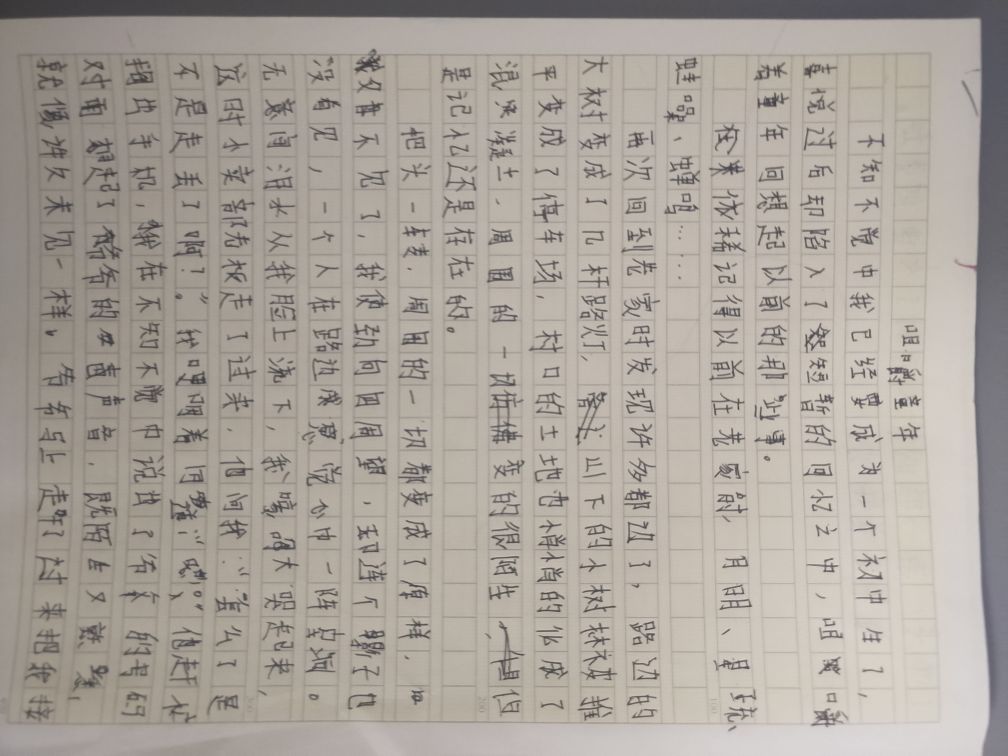 咀嚼童年
不知不觉中我已经要成为一个初中生了，
喜悦过后却陷入了短暂的回忆之中，咀嚼
着童年回想起以前的那些事。
依稀记得以前在老家时，月明、星疏、
蛙噪、蝉鸣……
再次回到老家时发现许多都边了，路边的
大树变成了几杆路灯，山下的小树林被推
平变成了停车场，村口的土地也悄悄的化成了
混泥凝土，周围的一切变的很陌生，但
是记忆还是存在的。
把头一转，周围的一切都变成了原样，
父母不见了，我使劲向四周望，却连个影子也
没有见，一个人在路边感觉心中一阵空洞。
无意间泪水从我脸上流下，我嚎啕大哭起来，
这时小卖部老板走了过来，他问我：“怎么了是
不是走丢了啊？”。我哽咽着回答：“嗯。”他赶忙
掏出手机，我在不知不觉中说出了爷爷的号码
对面想起了爷爷的声音，既陌生又熟悉，
就像许久未见一样，爷爷马上走了过来把我接